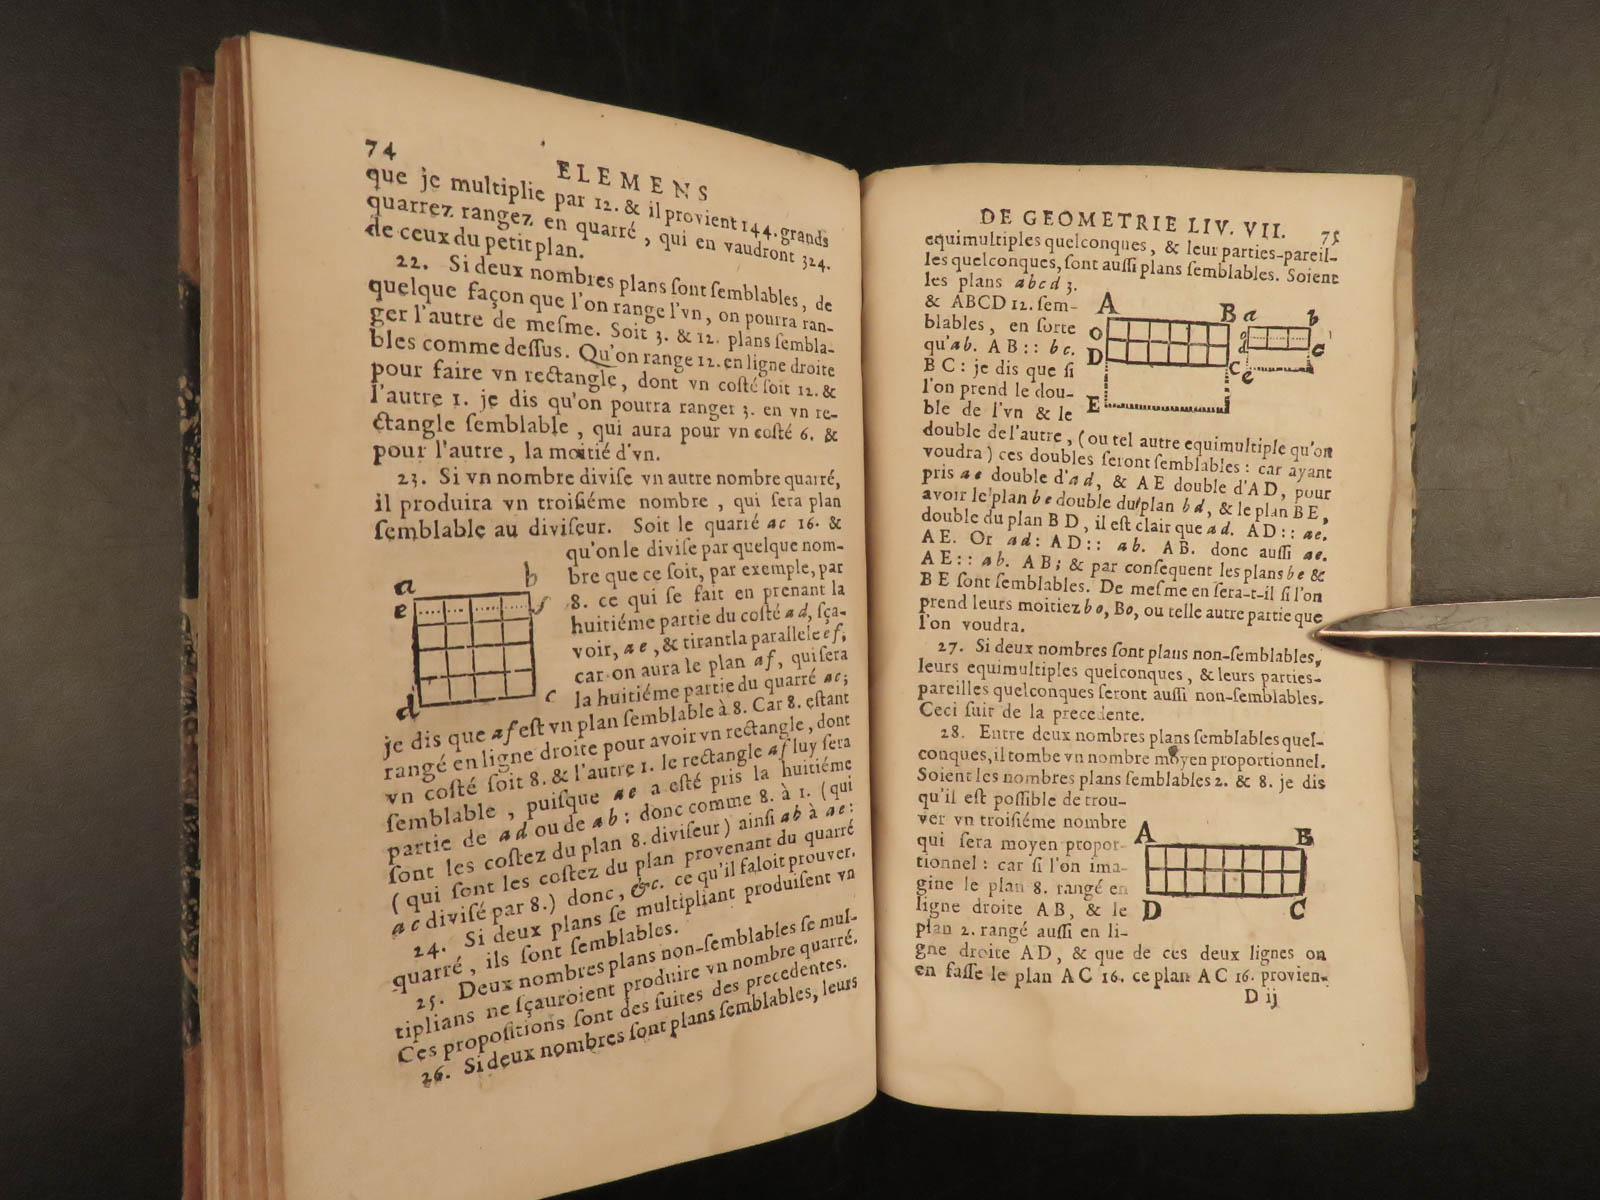 74
ELEMENS
que je multiplie par 12. & il provient 144. grands
quarrez rangez en quarré, qui en vaudront 324.
de ceux du petit plan.
22. Si deux nombres plans ſont ſemblables, de
quelque façon que l'on range l'vn, on pourra ran-
ger l'autre de meſme. Soit 3. & 12. plans ſembla-
bles comme deſſus. Qu'on range 12. en ligne droite
pour faire vn rectangle, dont vn coſté ſoit 12. &
l'autre 1. je dis qu'on pourra ranger 3. en vn re-
ctangle ſemblable, qui aura pour vn coſté 6. &
pour l'autre, la moitié d'vn.
23. Si vn nombre diviſe vn autre nombre quarré,
il produira vn troiſiéme nombre, qui ſera plan
ſemblable au diviſeur. Soit le quarré ac 16. &
qu'on le diviſe par quelque nom-
bre que ce ſoit, par exemple, par
8. ce qui ſe fait en prenant la
huitiéme partie du coſté ad, ſça-
voir, ae, & tirant la parallele ef,
car on aura le plan af, qui ſera
la huitiéme partie du quarré ac;
a b
e f
d c
je dis que af eſt vn plan ſemblable à 8. Car 8. eſtant
rangé en ligne droite pour avoir vn rectangle, dont
vn coſté ſoit 8. & l'autre 1. le rectangle af luy ſera
ſemblable, puiſque ae a eſté pris la huitiéme
partie de ad ou de ab: donc comme 8. à 1. (qui
ſont les coſtez du plan 8. diviſeur) ainſi ab à ae:
(qui ſont les coſtez du plan provenant du quarré
ac diviſé par 8.) donc, &c. ce qu'il faloit prouver.
24. Si deux plans ſe multipliant produiſent vn
quarré, ils ſont ſemblables.
25. Deux nombres plans non-ſemblables ſe mul-
tiplians ne ſçauroient produire vn nombre quarré.
Ces propoſitions ſont des ſuites des precedentes.
26. Si deux nombres ſont plans ſemblables, leurs
DE GEOMETRIE LIV. VII. 75
equimultiples quelconques, & leur parties-pareil-
les quelconques, ſont auſſi plans ſemblables. Soient
les plans abcd 3.
& ABCD 12. ſem-
blables, en ſorte
qu'ab. AB:: bc.
BC: je dis que ſi
l'on prend le dou-
ble de l'vn & le
A B a b
O o
D C d c
E e
double de l'autre, (ou tel autre equimultiple qu'on
voudra) ces doubles ſeront ſemblables: car ayant
pris ae double d'ad, & AE double d'AD, pour
avoir le plan be double du plan bd, & le plan BE,
double du plan BD, il eſt clair que ad. AD:: ae.
AE. Or ad: AD:: ab. AB. donc auſſi ae.
AE:: ab. AB; & par conſequent les plans be &
BE ſont ſemblables. De meſme en ſera-t-il ſi l'on
prend leurs moitiez bo, Bo, ou telle autre partie que
l'on voudra.
27. Si deux nombres ſont plans non-ſemblables,
leurs equimultiples quelconques, & leurs parties-
pareilles quelconques ſeront auſſi non-ſemblables.
Ceci ſuit de la precedente.
28. Entre deux nombres plans ſemblables quel-
conques, il tombe vn nombre moyen proportionnel.
Soient les nombres plans ſemblables 2. & 8. je dis
qu'il eſt poſſible de trou-
ver vn troiſiéme nombre
qui ſera moyen propor-
tionnel: car ſi l'on ima-
gine le plan 8. rangé en
ligne droite AB, & le
plan 2. rangé auſſi en li-
A B
D C
gne droite AD, & que de ces deux lignes on
en faſſe le plan AC 16. ce plan AC 16. provien-
D ij